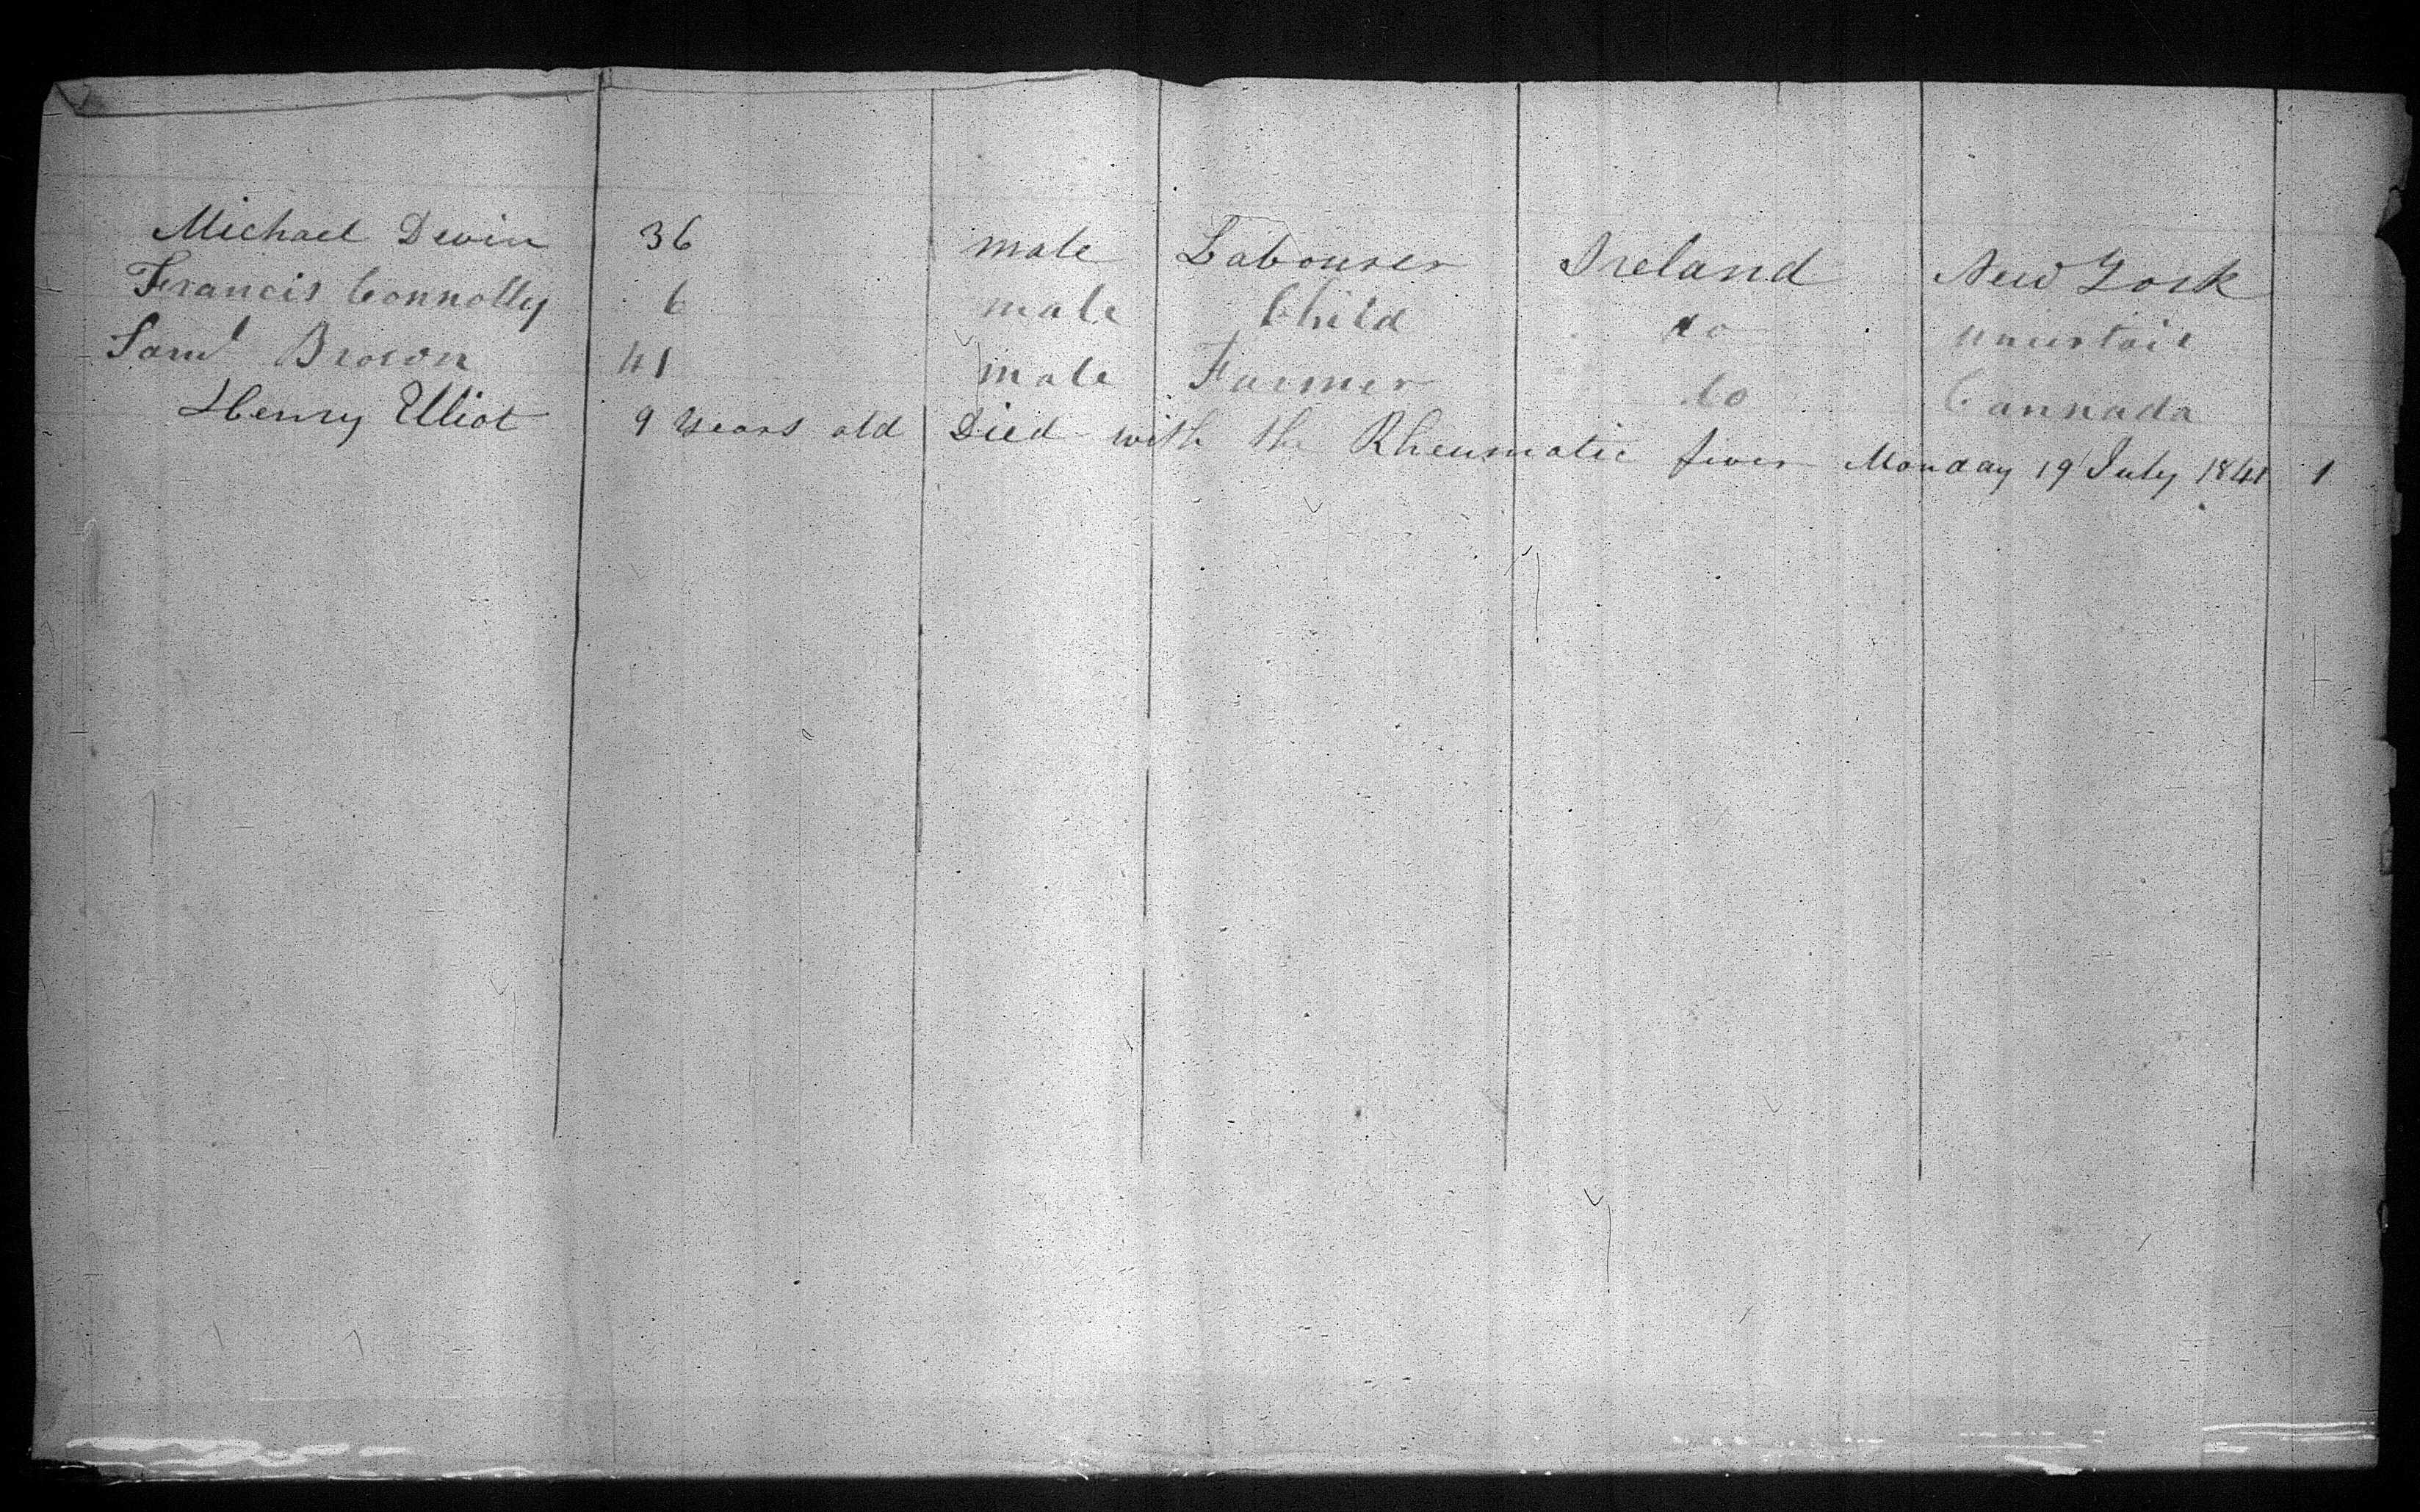 Michael Devin 36 male Labourer Ireland New York
Francis Connolly 6 male Child do
Saml Brown 41 male Farmer do Cannada
Henry Elliot 9 years old Died with the Rheumatic fever Monday 19 July 1841 1